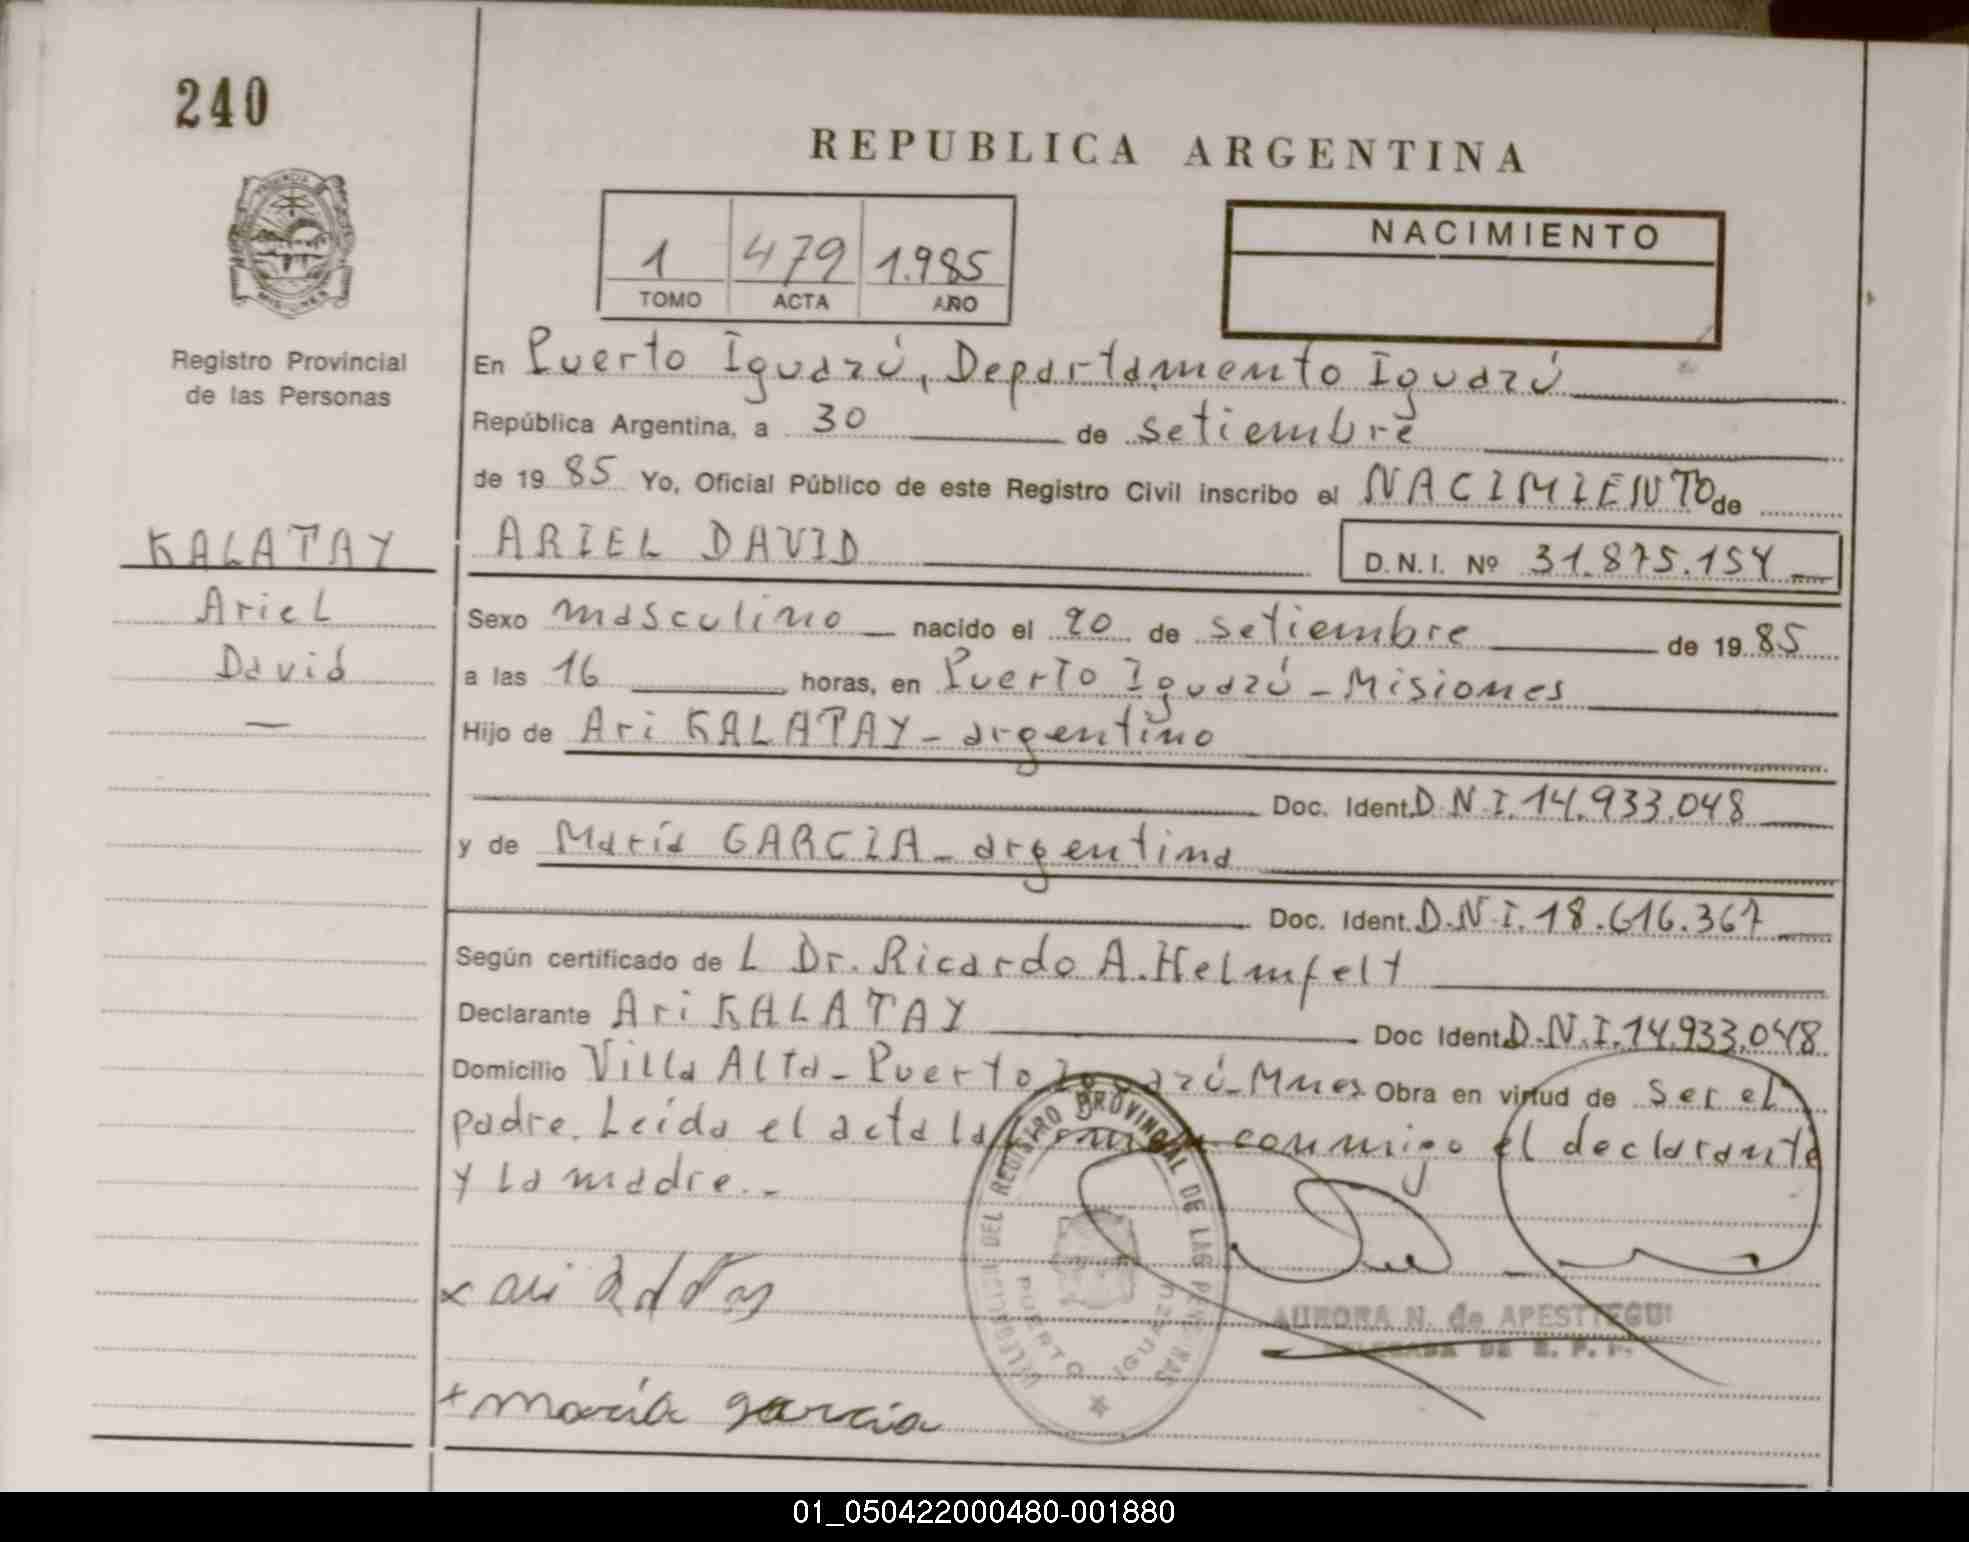 240
REPUBLICA ARGENTINA
PROVINCIA
MISIONES
Registro Provincial
de las Personas
1 479 1.985
TOMO ACTA AÑO
NACIMIENTO
En Puerto Iguazú, Departamento Iguazú
República Argentina, a 30 de setiembre
de 19 85 Yo, Oficial Público de este Registro Civil inscribo el NACIMIENTO de
KALATAY
Ariel
David
ARIEL DAVID D.N.I. Nº 31.875.154
Sexo masculino nacido el 20 de setiembre de 19 85
a las 16 horas, en Puerto Iguazú - Misiones
Hijo de Ari KALATAY - argentino
Doc. Ident. D.N.I. 14.933.048
y de María GARCIA - argentina
Doc. Ident. D.N.I. 18.616.367
Según certificado de L Dr. Ricardo A. Helmfelt
Declarante Ari KALATAY Doc Ident. D.N.I. 14.933.048
Domicilio Villa Alta - Puerto Iguazú - Mnes Obra en virtud de ser el
padre. Leida el acta la conmigo el declarante
y la madre. -
x ari
DEL REGISTRO PROVINCIAL DE LAS PERSONAS
PUERTO IGUAZU
AURORA N. de APESTEGUI
+ maría garcia
01_050422000480-001880